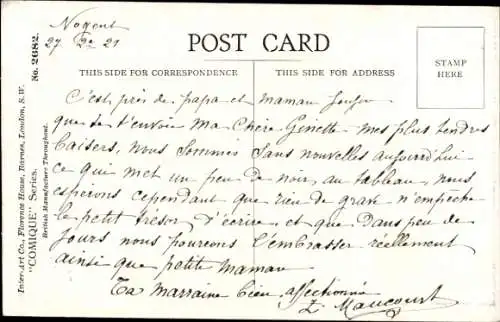 Nogent
27 Dc 21
POST CARD
THIS SIDE FOR CORRESPONDENCE
THIS SIDE FOR ADDRESS
STAMP
HERE
Inter-Art Co., Florence House, Barnes, London, S.W.
"COMIQUE" Series. No. 2682.
British Manufacture Throughout.
C'est près de papa et maman
que je t'envoie Ma Chère Ginette mes plus tendres
baisers, nous sommes sans nouvelles aujourd'hui
ce qui met un peu de noir, au tableau, nous
esperons cependant que rien de grave n'empêche
le petit trésor d'écrire et que dans peu de
jours nous pourrons l'embrasser réellement
ainsi que petite maman
Ta marraine bien affectionnée
L Maucourt